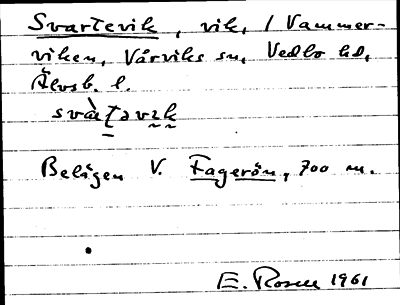 Svartevik, vik, i Vammer-
viken, Vårviks sn, Vedbo hd,
Älvsb. l.
svàʈəvɪk
Belägen V. Fagerön, 700 m.
E. Rosell 1961